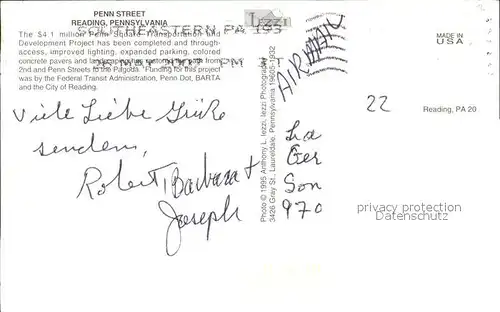 PENN STREET
READING, PENNSYLVANIA
The $4.1 million Penn Square Transportation and
Development Project has been completed and through-
access, improved lighting, expanded parking, colored
concrete pavers and landscaping the path from
2nd and Penn Streets to the Pagoda. Funding for this project
was by the Federal Transit Administration, Penn Dot, BARTA
and the City of Reading.
SOUTHEASTERN PA 193
PM
Iezzi
AIRMAIL
MADE IN
USA
Photo © 1995 Anthony L. Iezzi, Iezzi Photography
3426 Gray St., Laureldale, Pennsylvania 19605-1932
22
Reading, PA 20
Viele Liebe Grüße
senden,
Robert, Barbara +
Joseph
Ger
Son
970
privacy protection
Datenschutz